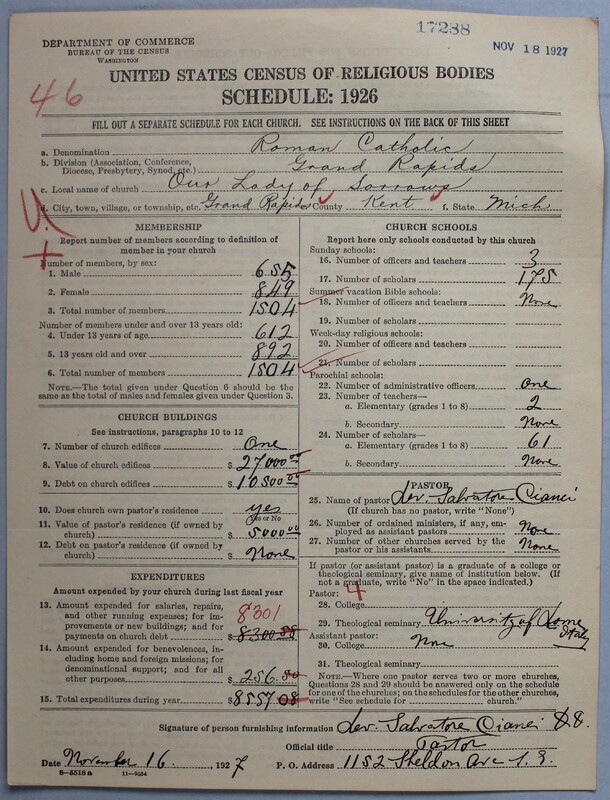 17288
NOV 18 1927
DEPARTMENT OF COMMERCE
BUREAU OF THE CENSUS
WASHINGTON
46
UNITED STATES CENSUS OF RELIGIOUS BODIES
SCHEDULE: 1926
FILL OUT A SEPARATE SCHEDULE FOR EACH CHURCH. SEE INSTRUCTIONS ON THE BACK OF THIS SHEET
a. Denomination Roman Catholic
b. Division (Association, Conference, Diocese, Presbytery, Synod, etc.) Grand Rapids
c. Local name of church Our Lady of Sorrows
d. City, town, village, or township, etc. Grand Rapids County Kent f. State Mich
MEMBERSHIP
Report number of members according to definition of
member in your church
Number of members, by sex:
1. Male 655
2. Female 849
3. Total number of members 1504
Number of members under and over 13 years old:
4. Under 13 years of age 612
5. 13 years old and over 892
6. Total number of members 1504
NOTE.—The total given under Question 6 should be
the same as the total of males and females given under Question 3.
CHURCH BUILDINGS
See instructions, paragraphs 10 to 12
7. Number of church edifices One
8. Value of church edifices $ 27000 00
9. Debt on church edifices $ 10500 00
10. Does church own pastor's residence yes
Yes or No
11. Value of pastor's residence (if owned by
church) $ 5000 00
12. Debt on pastor's residence (if owned by
church) $ None
EXPENDITURES
Amount expended by your church during last fiscal year
13. Amount expended for salaries, repairs,
and other running expenses; for improvements or new buildings; and for
payments on church debt $ 8300.58
8301
14. Amount expended for benevolences,
including home and foreign missions; for
denominational support; and for all
other purposes $ 256.50
15. Total expenditures during year $ 8557 08
CHURCH SCHOOLS
Report here only schools conducted by this church
Sunday schools:
16. Number of officers and teachers 3
17. Number of scholars 175
Summer vacation Bible schools:
18. Number of officers and teachers None
19. Number of scholars
Week-day religious schools:
20. Number of officers and teachers
21. Number of scholars
Parochial schools:
22. Number of administrative officers One
23. Number of teachers—
a. Elementary (grades 1 to 8) 2
b. Secondary None
24. Number of scholars—
a. Elementary (grades 1 to 8) 61
b. Secondary None
PASTOR
25. Name of pastor Rev. Salvatore Cianci
(If church has no pastor, write "None")
26. Number of ordained ministers, if any, employed as assistant pastors None
27. Number of other churches served by the
pastor or his assistants None
If pastor (or assistant pastor) is a graduate of a college or
theological seminary, give name of institution below. (If
not a graduate, write "No" in the space indicated.)
Pastor: 4
28. College
29. Theological seminary University of Rome Italy
Assistant pastor:
30. College None
31. Theological seminary
NOTE.—Where one pastor serves two or more churches,
Questions 28 and 29 should be answered only on the schedule
for one of the churches; on the schedules for the other churches,
write "See schedule for church."
Signature of person furnishing information Rev. Salvatore Cianci
Official title Pastor
Date November 16, 1927 P. O. Address 1152 Sheldon Ave S. E.
8—5518 a 11—9054